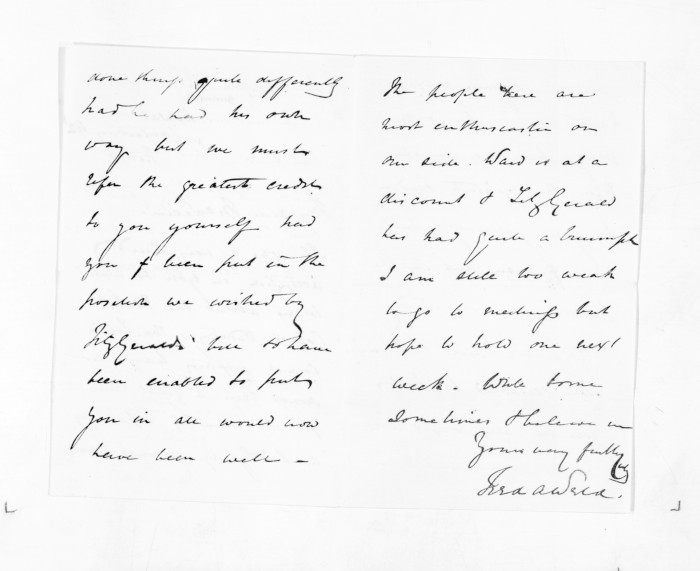 done things quite differently
had he had his own
way but we must
refer the greatest credit
to you yourself had
you been put in the
position we wished by
FitzGerald's bill to have
been enabled to put
you in all would now
have been well –
The people here are
most enthusiastic on
our side. Ward is at a
discount & FitzGerald
has had quite a triumph
I am still too weak
to go to meetings but
hope to hold one next
week. Write some
Sometimes & believe me
Yours very truly
Fred A Weld.